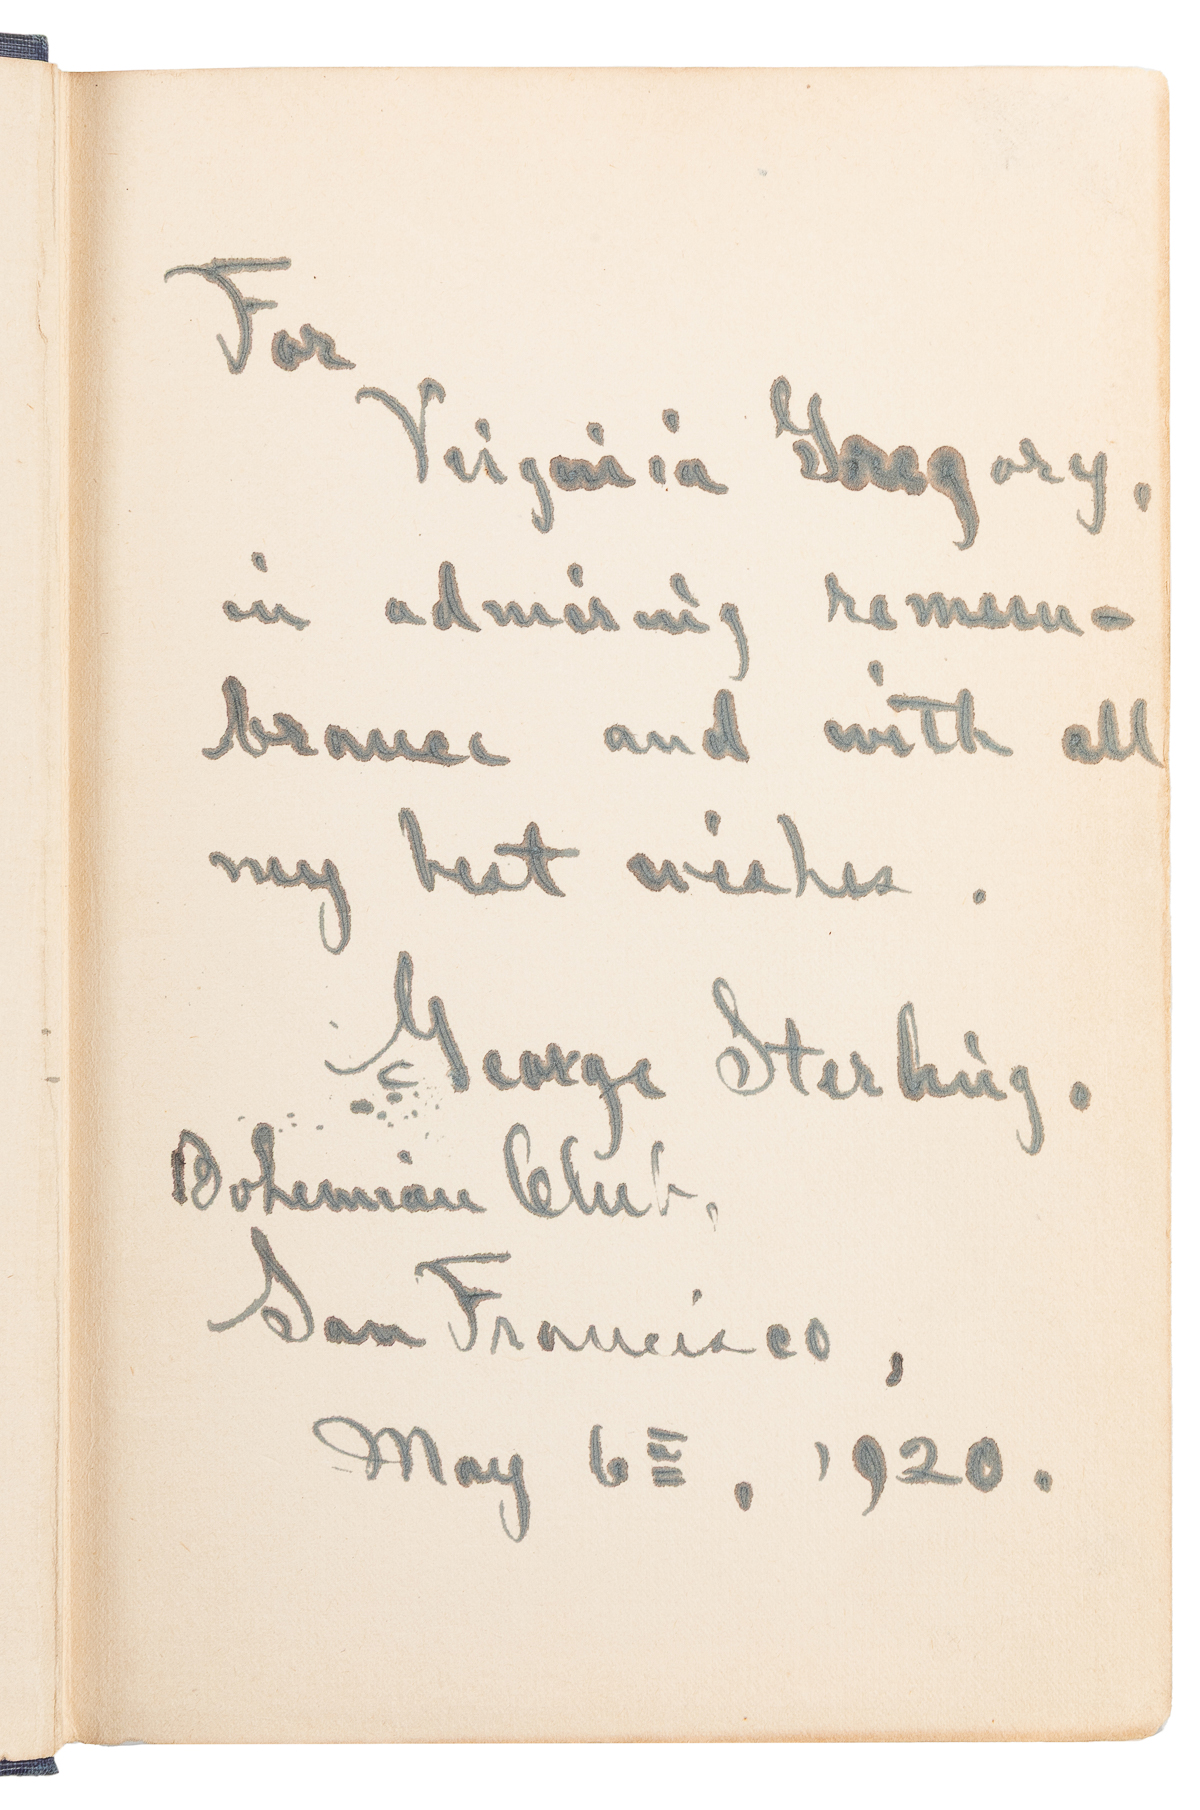 For
Virginia Gregory,
in admiring remem-
brance and with all
my best wishes.
George Sterling.
Bohemian Club,
San Francisco,
May 6th, 1920.